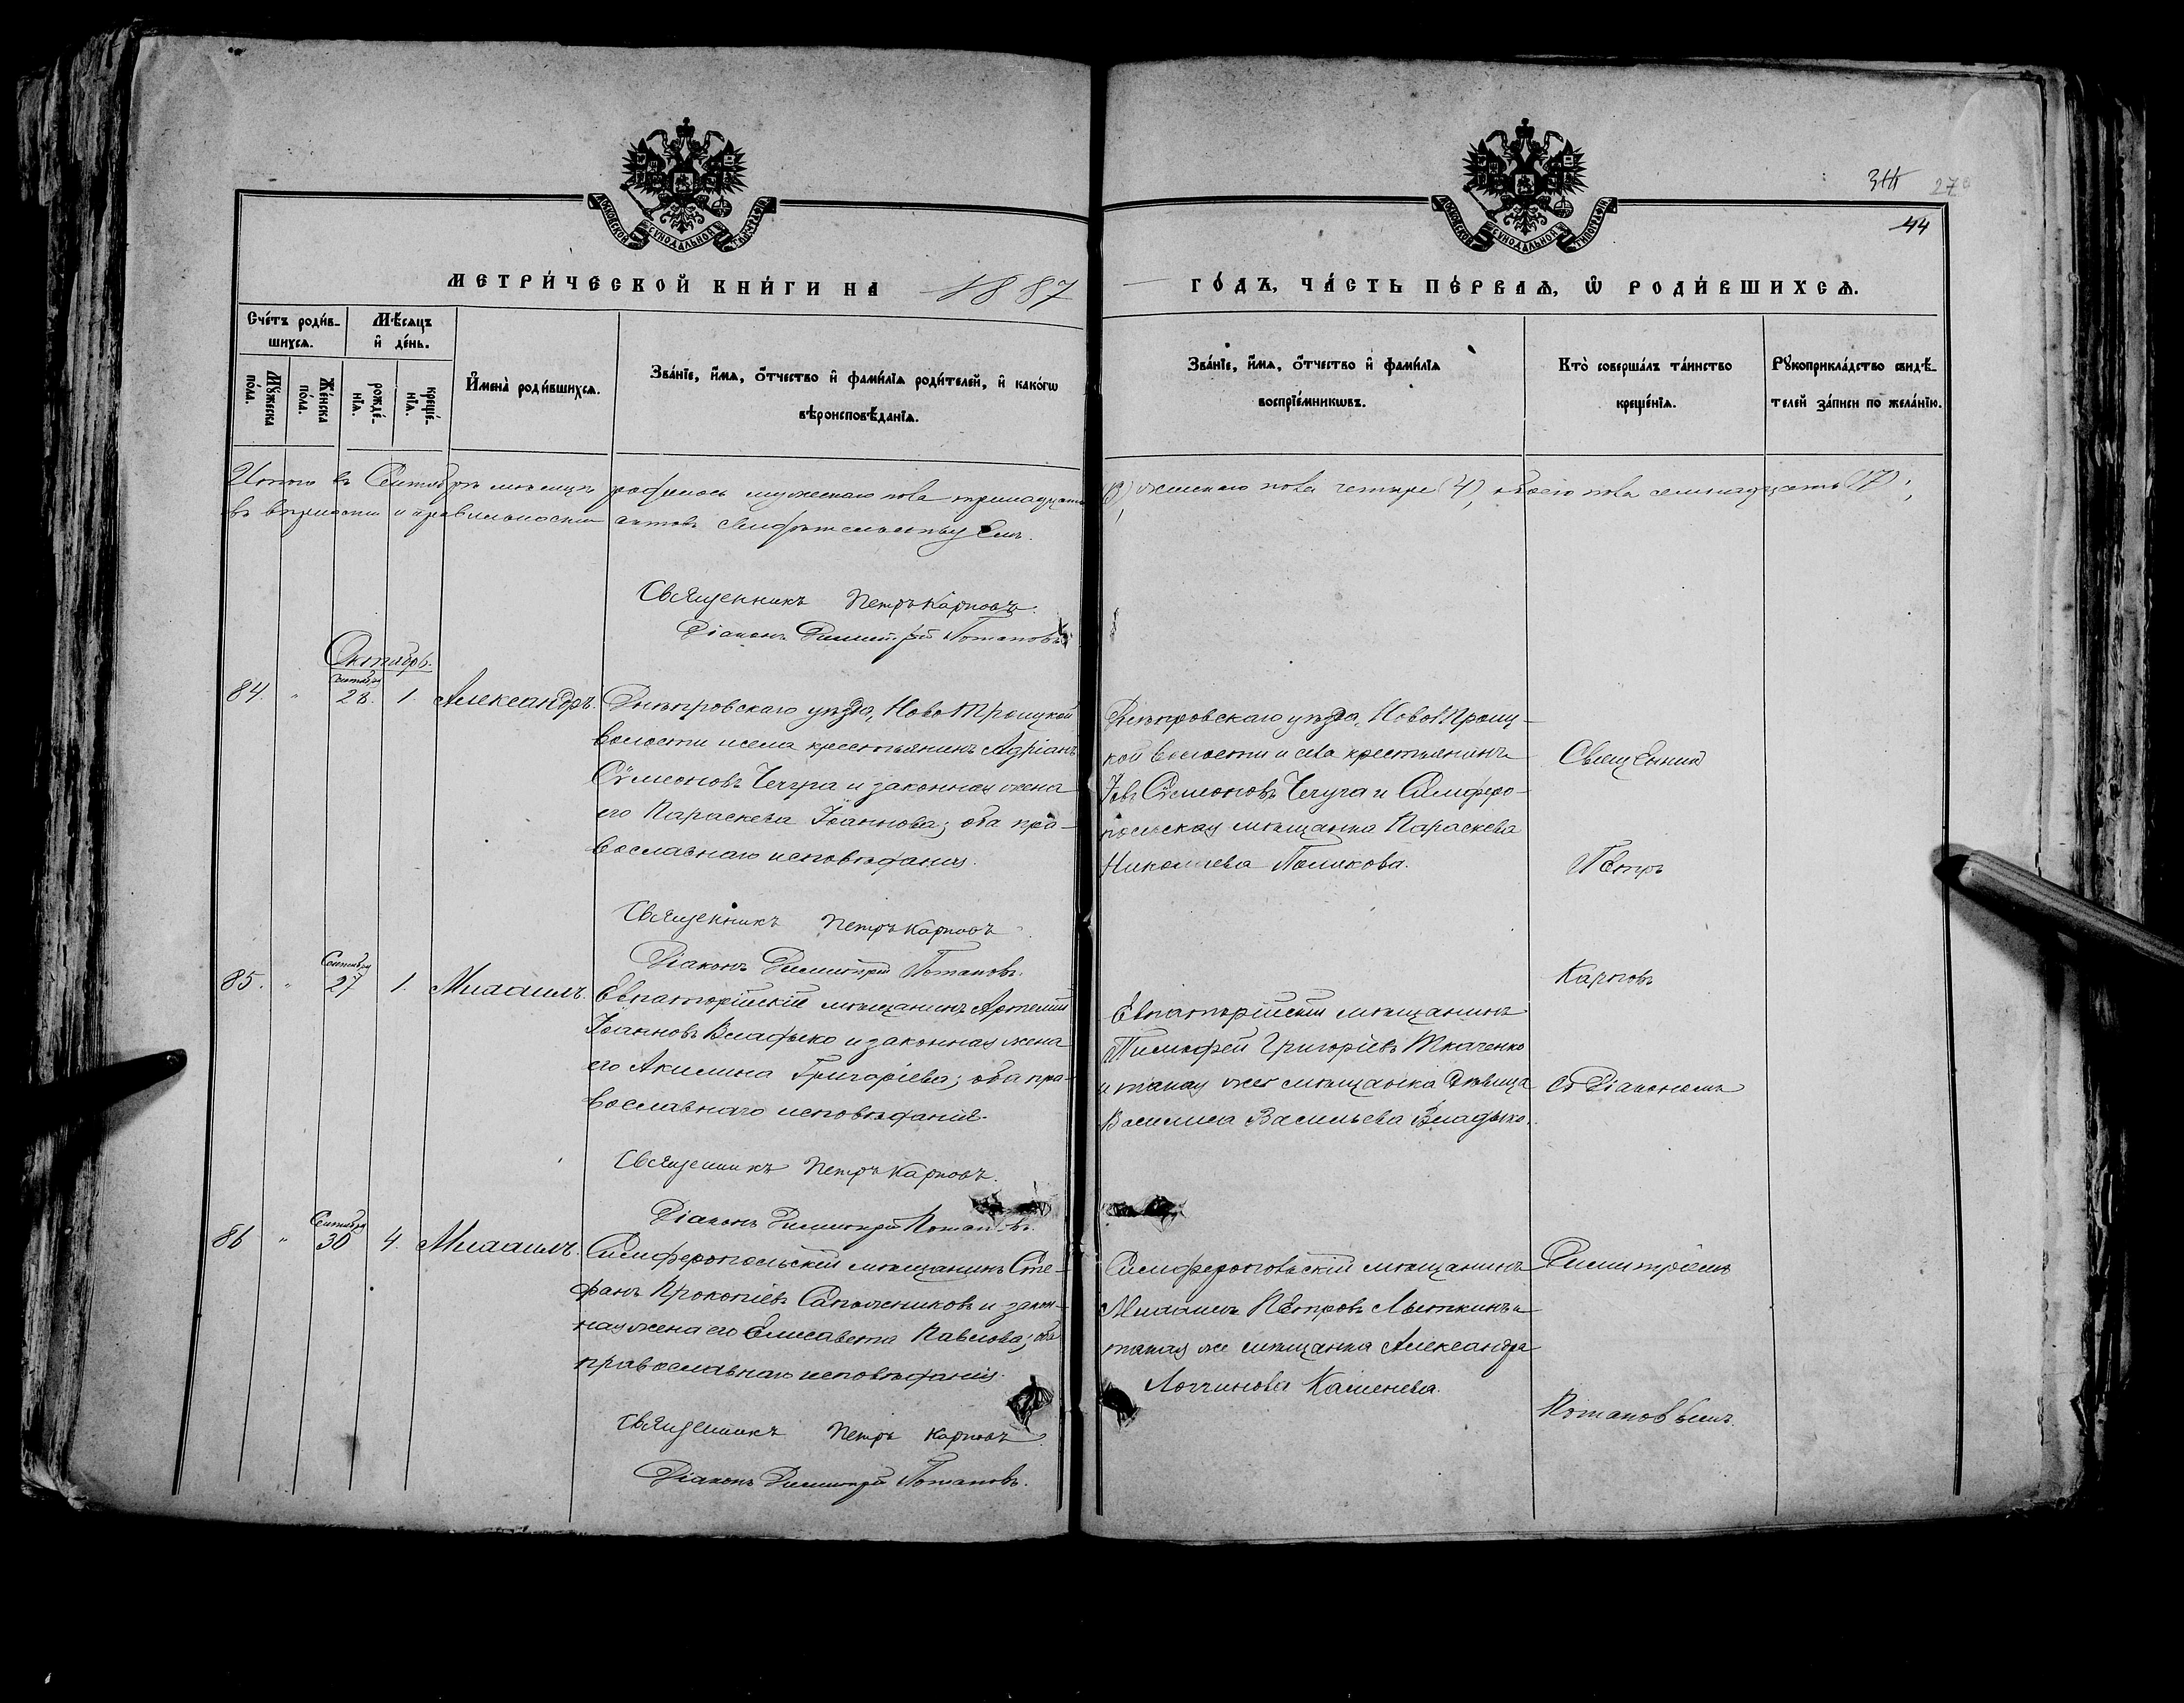 МОСКОВСКОЙ СѴНОДАЛЬНОЙ ТИПОГРАФІИ
МОСКОВСКОЙ СѴНОДАЛЬНОЙ ТИПОГРАФІИ
44
МЕТРИ́ЧЕСКОЙ КНИ́ГИ НА 1887 ГО́ДЪ, ЧА́СТЬ ПЕ́РВАѦ, Ѡ РОДИ́ВШИХСѦ.
Сче́тъ роди́в-
шихсѧ.
Мѣ́сѧцъ
и҆ де́нь.
Мꙋ́жеска по́ла.
Же́нска по́ла.
рожде́-нїѧ.
креще́-нїѧ.
И҆мена̀ роди́вшихсѧ.
Зва́нїе, и҆́мѧ, ѻ҆́тчество и҆ фами́лїѧ роди́телей, и҆ како́гѡ
вѣроисповѣ́данїѧ.
Зва́нїе, и҆́мѧ, ѻ҆́тчество и҆ фами́лїѧ
воспрїе́мникѡвъ.
Кто̀ соверша́лъ та́инство
креще́нїѧ.
Рꙋкоприкла́дство свидѣ́-
телей за́писи по жела́нїю.
Итого въ Сентябрѣ мѣсяцѣ родилось мужескаго пола тринадцать (13), женскаго пола четыре (4), обоего пола семнадцать (17);
въ вѣрности и правильности актовъ свидѣтельствуемъ.
Священникъ Петръ Карповъ.
Діаконъ Димитрій Потаповъ.
Октябрь.
84. " Сентября 28. 1. Александръ.
Днѣпровскаго уѣзда, НовоТроицкой
волости и села крестьянинъ Адріанъ
Сѵмеоновъ Чечуга и законная жена
его Параскева Іоаннова; оба пра-
вославнаго исповѣданія.
Священникъ Петръ Карповъ
Діаконъ Димитрій Потаповъ.
Днѣпровскаго уѣзда, НовоТроиц-
кой волости и села крестьянинъ
Іовъ Сѵмеоновъ Чечуга и Симферо-
польская мѣщанка Параскева
Николаева Полякова.
Священникъ
Петръ
Карповъ
съ Діакономъ
Димитріемъ
Потаповымъ.
85. " Сентября 27 1. Михаилъ.
Евпаторійскій мѣщанинъ Артемій
Іоанновъ Владыко и законная жена
его Акилина Григоріева; оба пра-
вославнаго исповѣданія.
Священникъ Петръ Карповъ.
Діаконъ Димитрій Потаповъ.
Евпаторійскій мѣщанинъ
Тимофей Григоріевъ Ткаченко
и такая же мѣщанка дѣвица
Василиса Васильева Владыко.
86 " Сентября 30 4. Михаилъ.
Симферопольскій мѣщанинъ Сте-
фанъ Прокопіевъ Сапожниковъ и закон-
ная жена его Елисавета Павлова; оба
православнаго исповѣданія.
Священникъ Петръ Карповъ
Діаконъ Димитрій Потаповъ.
Симферопольскій мѣщанинъ
Михаилъ Петровъ Лыткинъ и
такая же мѣщанка Александра
Логгинова Каменева.